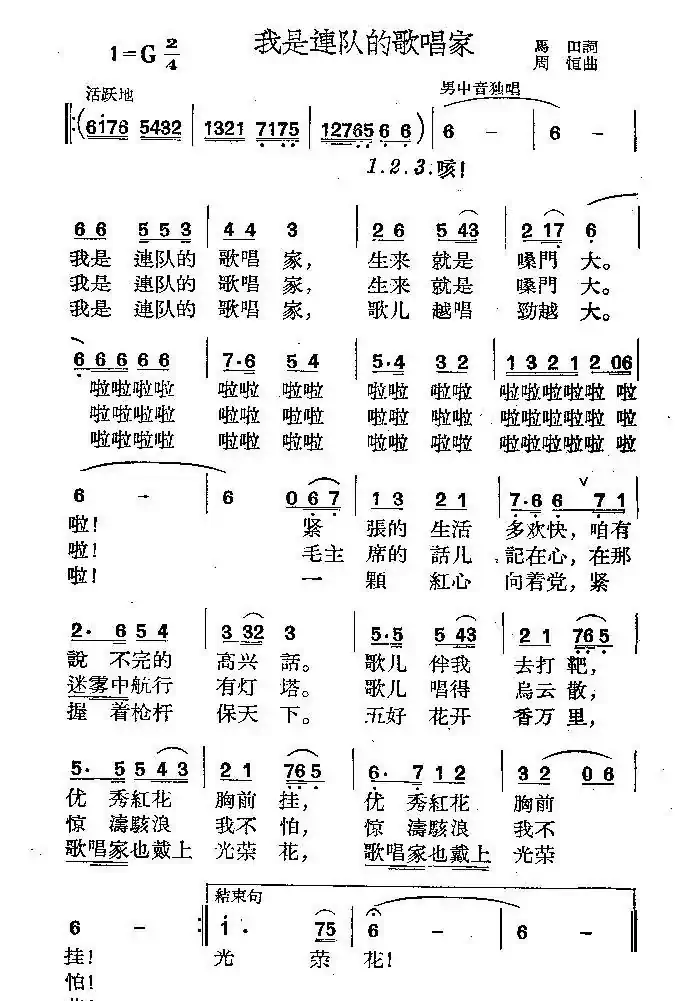 我是連队的歌唱家
1=G 2/4
馬田詞
周恒曲
活跃地
男中音独唱
(6176 5432 | 1321 7175 | 12765 6 6) | 6 - | 6 - |
1.2.3.咳!
66 553 | 44 3 | 26 543 | 217 6 |
我是 連队的 歌唱 家, 生来 就是 嗓門 大。
我是 連队的 歌唱 家, 生来 就是 嗓門 大。
我是 連队的 歌唱 家, 歌儿 越唱 勁越 大。
6 6666 | 7·6 54 | 5·4 32 | 1321 206 |
啦啦啦啦 啦啦 啦啦 啦啦 啦啦 啦啦啦啦啦 啦
啦啦啦啦 啦啦 啦啦 啦啦 啦啦 啦啦啦啦啦 啦
啦啦啦啦 啦啦 啦啦 啦啦 啦啦 啦啦啦啦啦 啦
6 - | 6 067 | 13 21 | 7·66 71 |
啦! 紧 張的 生活 多欢快, 咱有
啦! 毛主 席的 話儿 記在心, 在那
啦! 一 顆 紅心 向着党, 紧
2· 654 | 332 3 | 5·5 543 | 21 765 |
說 不完的 高兴 話。 歌儿 伴我 去打 靶,
迷雾中航行 有灯 塔。 歌儿 唱得 烏云 散,
握 着枪杆 保天 下。 五好 花开 香万 里,
5· 5543 | 21 765 | 6· 712 | 32 06 |
优 秀紅花 胸前 挂, 优 秀紅花 胸前
惊 濤駭浪 我不 怕, 惊 濤駭浪 我不
歌唱家也戴上 光荣 花, 歌唱家也戴上 光荣
結束句
6 - :| 1· 75 | 6 - | 6 - |
挂! 光 荣 花!
怕!